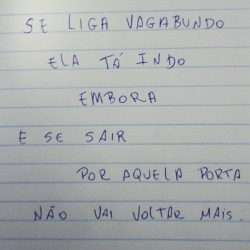 SE LIGA VAGABUNDO
ELA TÁ INDO
EMBORA
E SE SAIR
POR AQUELA PORTA
NÃO VAI VOLTAR MAIS.